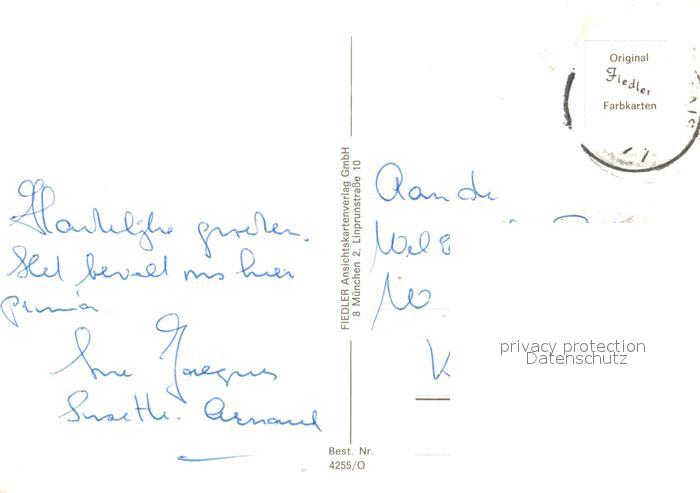 Original
Fiedler
Farbkarten
FIEDLER Ansichtskartenverlag GmbH
8 München 2, Linprunstraße 10
Hartelijke groeten.
Het bevalt ons hier
prima
Jacques
Susette. Arnaud
Aan de
privacy protection
Datenschutz
Best. Nr.
4255/O